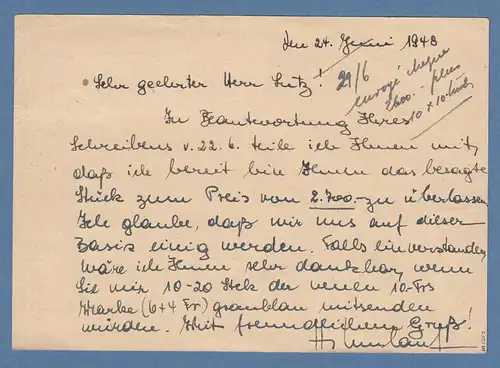 den 24. Juni 1948
Sehr geehrter Herr Lutz! 29/6
envoyé chèque
2600.- plus
10 x 10.-
In Beantwortung Ihres
Schreibens v. 22.6. teile ich Ihnen mit,
daß ich bereit bin Ihnen das besagte
Stück zum Preis von 2.700.- zu überlassen
Ich glaube, daß wir uns auf dieser
Basis einig werden. Falls einverstanden,
wäre ich Ihnen sehr dankbar, wenn
Sie mir 10-20 Stck der neuen 10-Frs
Marke (6+4 Fr) graublau mitsenden
würden. Mit freundlichem Gruß!